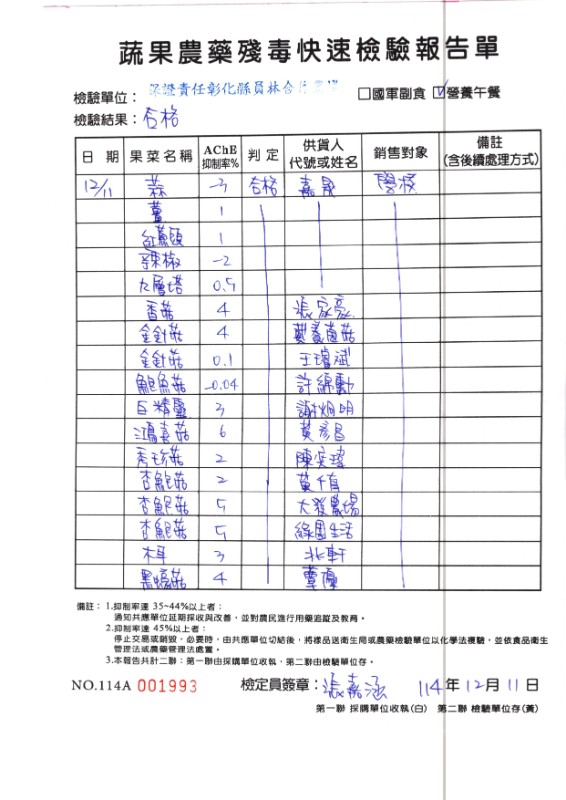 蔬果農藥殘毒快速檢驗報告單
檢驗單位： 保證責任彰化縣員林合作農場 □國軍副食 ☑營養午餐
檢驗結果： 合格
日期 果菜名稱 AChE 抑制率% 判定 供貨人代號或姓名 銷售對象 備註(含後續處理方式)
12/11 蒜 -3 合格 嘉晟 學校
薑 1
紅蔥頭 1
辣椒 -2
九層塔 0.5
香菇 4 張家豪
金針菇 4
金針菇 0.1 王瓊斌
鮑魚菇 -0.04 許錦勳
白精靈 3 謝炯明
鴻喜菇 6 黃彥昌
秀珍菇 2
杏鮑菇 2 黃千有
杏鮑菇 5 大發農場
杏鮑菇 5 綠園生活
木耳 3 北軒
黑蠔菇 4
備註： 1.抑制率達 35~44%以上者：
通知共應單位延期採收與改善，並對農民進行用藥追蹤及教育。
2.抑制率達 45%以上者：
停止交易或銷毀，必要時，由共應單位切結後，將樣品送衛生局或農藥檢驗單位以化學法複驗，並依食品衛生
管理法或農藥管理法處置。
3.本報告共計二聯：第一聯由採購單位收執，第二聯由檢驗單位存。
NO.114A 001993 檢定員簽章： 張嘉涵 114年12月11日
第一聯 採購單位收執(白) 第二聯 檢驗單位存(黃)